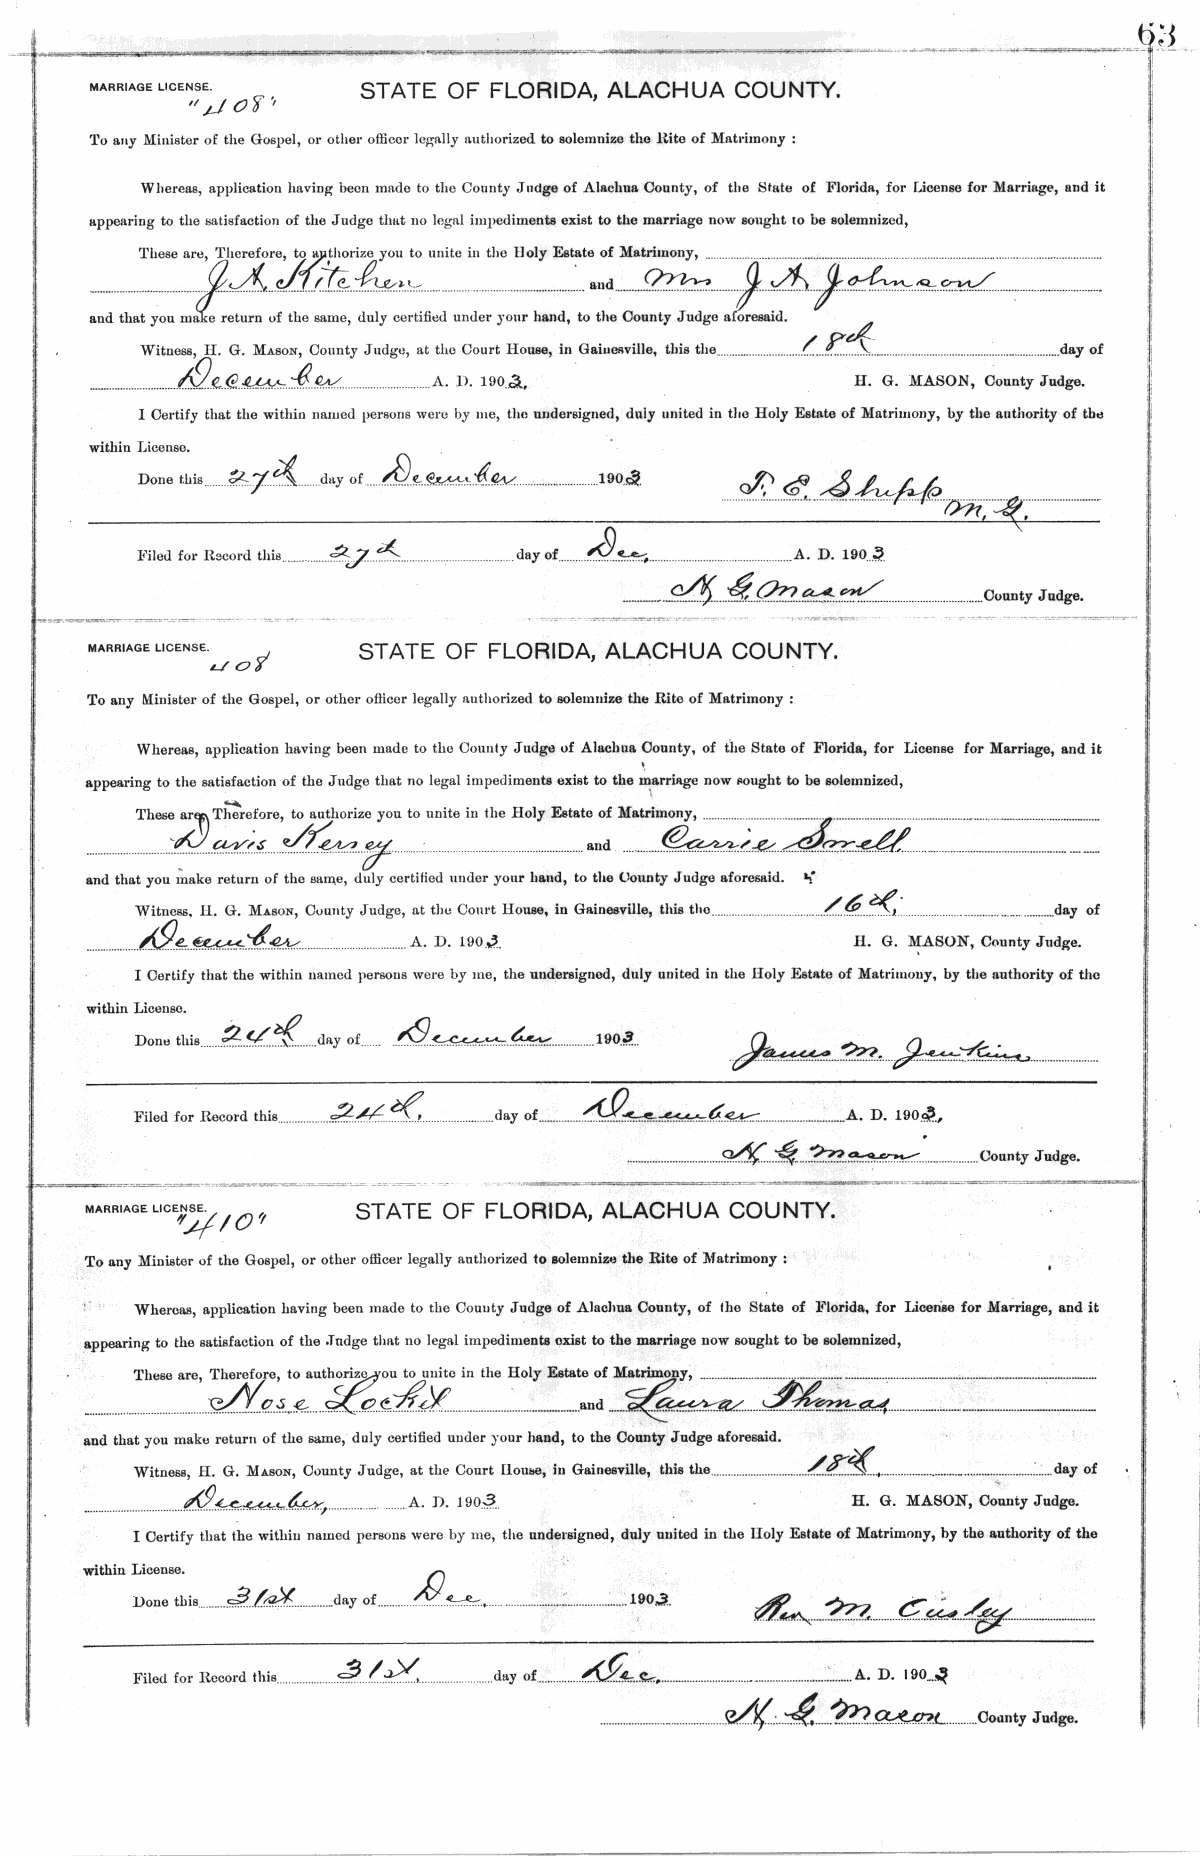 63
MARRIAGE LICENSE. STATE OF FLORIDA, ALACHUA COUNTY.
"408"
To any Minister of the Gospel, or other officer legally authorized to solemnize the Rite of Matrimony :
Whereas, application having been made to the County Judge of Alachua County, of the State of Florida, for License for Marriage, and it
appearing to the satisfaction of the Judge that no legal impediments exist to the marriage now sought to be solemnized,
These are, Therefore, to authorize you to unite in the Holy Estate of Matrimony,
J A Kitchen and Mrs J A Johnson
and that you make return of the same, duly certified under your hand, to the County Judge aforesaid.
Witness, H. G. MASON, County Judge, at the Court House, in Gainesville, this the 18th day of
December A. D. 1903. H. G. MASON, County Judge.
I Certify that the within named persons were by me, the undersigned, duly united in the Holy Estate of Matrimony, by the authority of the
within License.
Done this 27th day of December 1903 T. E. Shipp
M. G.
Filed for Record this 27th day of Dec, A. D. 1903
H G. Mason County Judge.
MARRIAGE LICENSE. STATE OF FLORIDA, ALACHUA COUNTY.
408
To any Minister of the Gospel, or other officer legally authorized to solemnize the Rite of Matrimony :
Whereas, application having been made to the County Judge of Alachua County, of the State of Florida, for License for Marriage, and it
appearing to the satisfaction of the Judge that no legal impediments exist to the marriage now sought to be solemnized,
These are, Therefore, to authorize you to unite in the Holy Estate of Matrimony,
Davis Kersey and Carrie Smell.
and that you make return of the same, duly certified under your hand, to the County Judge aforesaid.
Witness, H. G. MASON, County Judge, at the Court House, in Gainesville, this the 16th, day of
December A. D. 1903. H. G. MASON, County Judge.
I Certify that the within named persons were by me, the undersigned, duly united in the Holy Estate of Matrimony, by the authority of the
within License.
Done this 24th day of December 1903 James M. Jenkins
Filed for Record this 24th, day of December A. D. 1903,
H G Mason County Judge.
MARRIAGE LICENSE. STATE OF FLORIDA, ALACHUA COUNTY.
"410"
To any Minister of the Gospel, or other officer legally authorized to solemnize the Rite of Matrimony :
Whereas, application having been made to the County Judge of Alachua County, of the State of Florida, for License for Marriage, and it
appearing to the satisfaction of the Judge that no legal impediments exist to the marriage now sought to be solemnized,
These are, Therefore, to authorize you to unite in the Holy Estate of Matrimony,
Nose Lockit and Laura Thomas,
and that you make return of the same, duly certified under your hand, to the County Judge aforesaid.
Witness, H. G. MASON, County Judge, at the Court House, in Gainesville, this the 18th, day of
December, A. D. 1903 H. G. MASON, County Judge.
I Certify that the within named persons were by me, the undersigned, duly united in the Holy Estate of Matrimony, by the authority of the
within License.
Done this 31st day of Dec, 1903. Rev M. Cusley
Filed for Record this 31st, day of Dec, A. D. 1903
H. G. Mason County Judge.